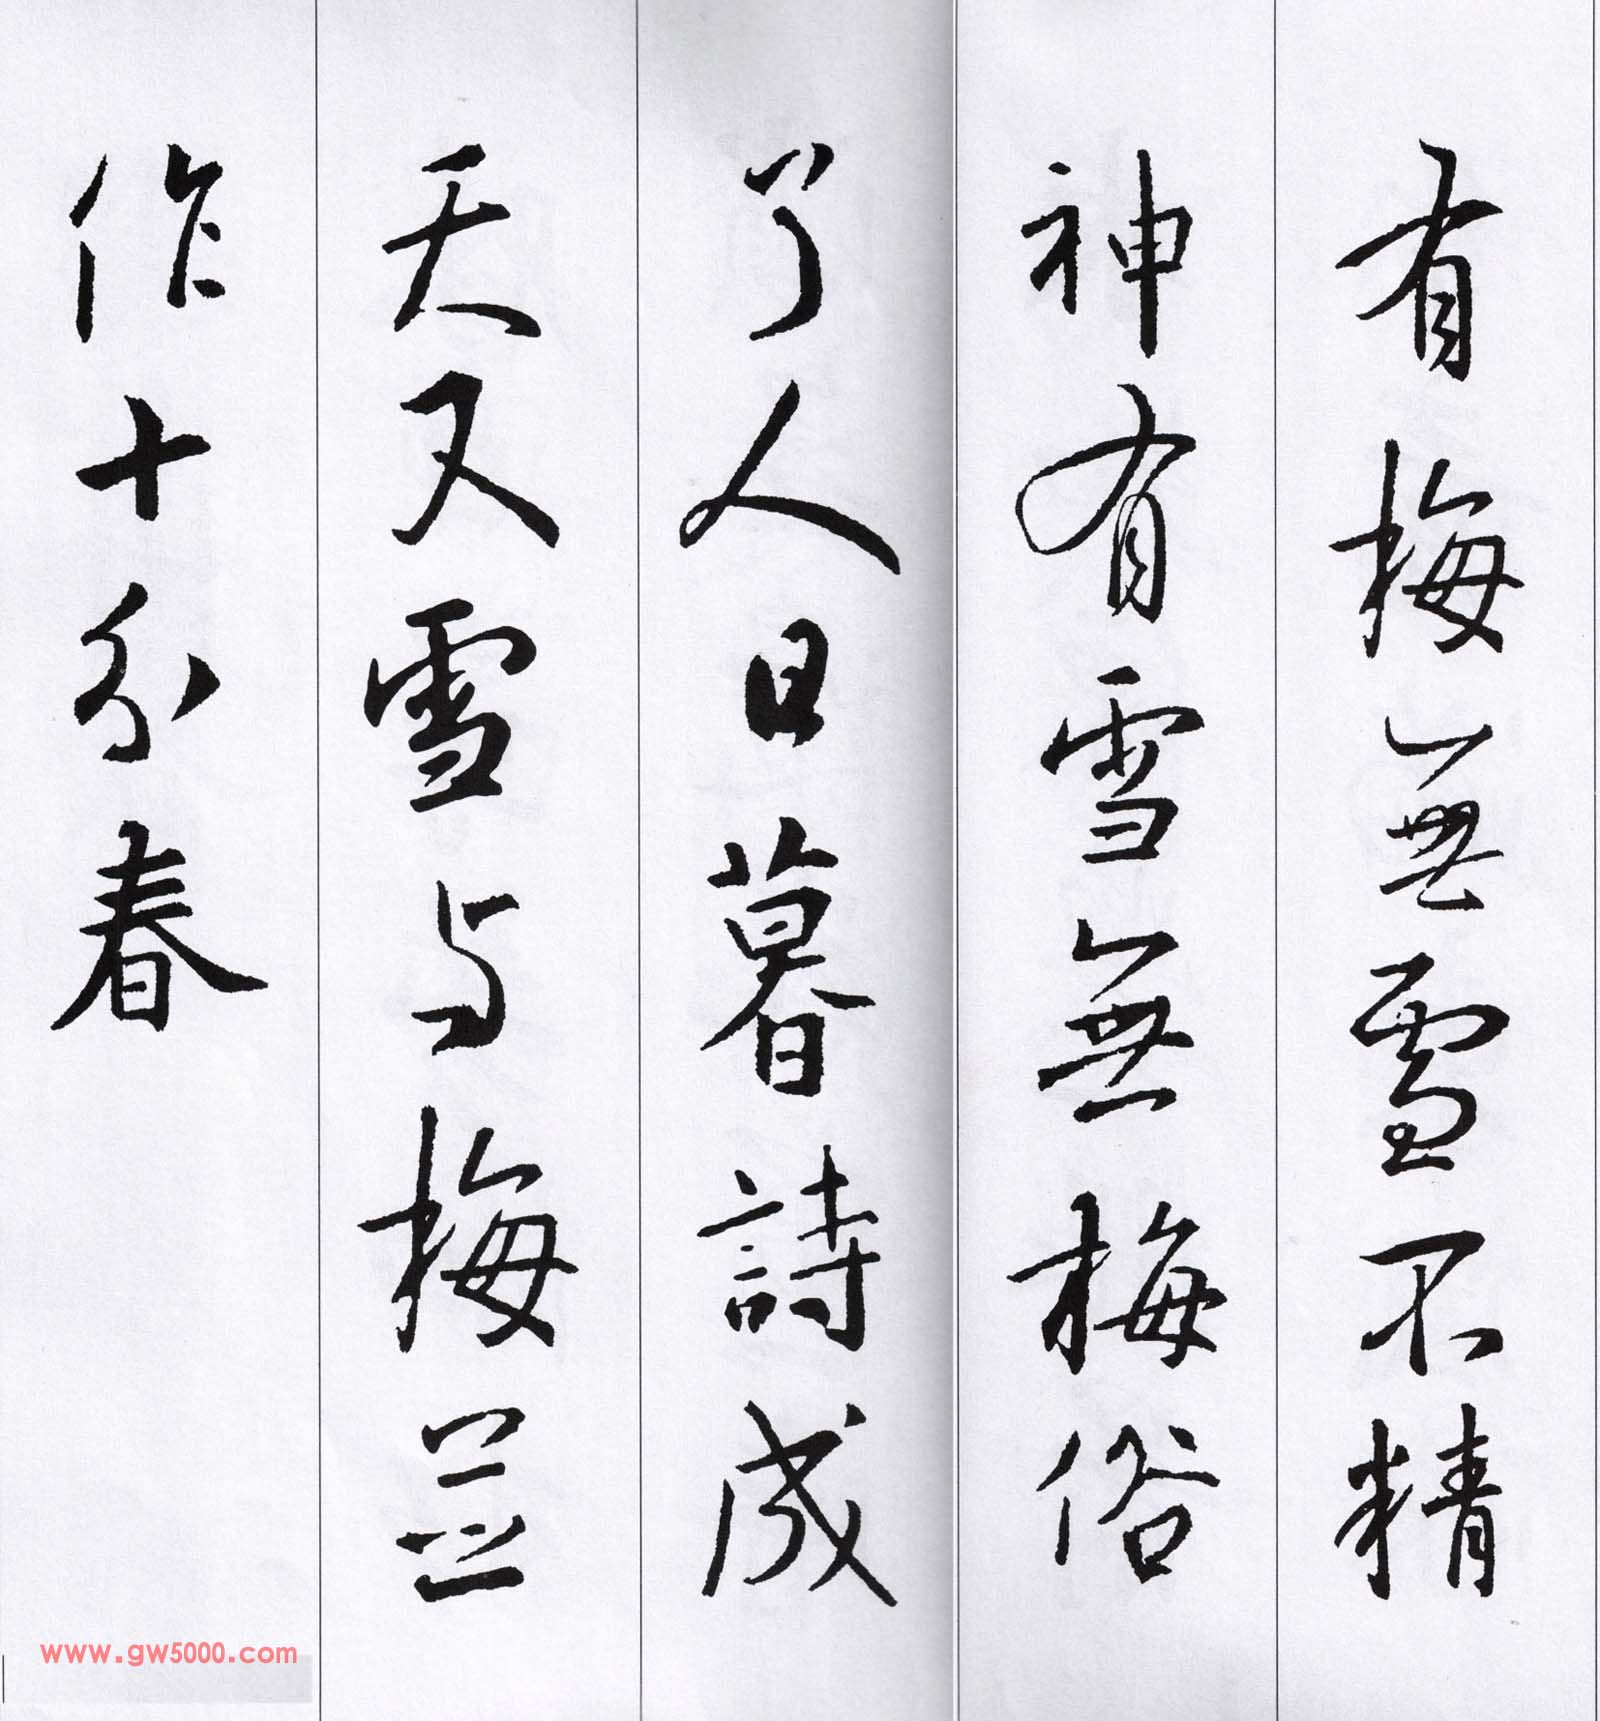 有梅無雪不精
神有雪無梅俗
了人日暮詩成
天又雪与梅並
作十分春
www.gw5000.com